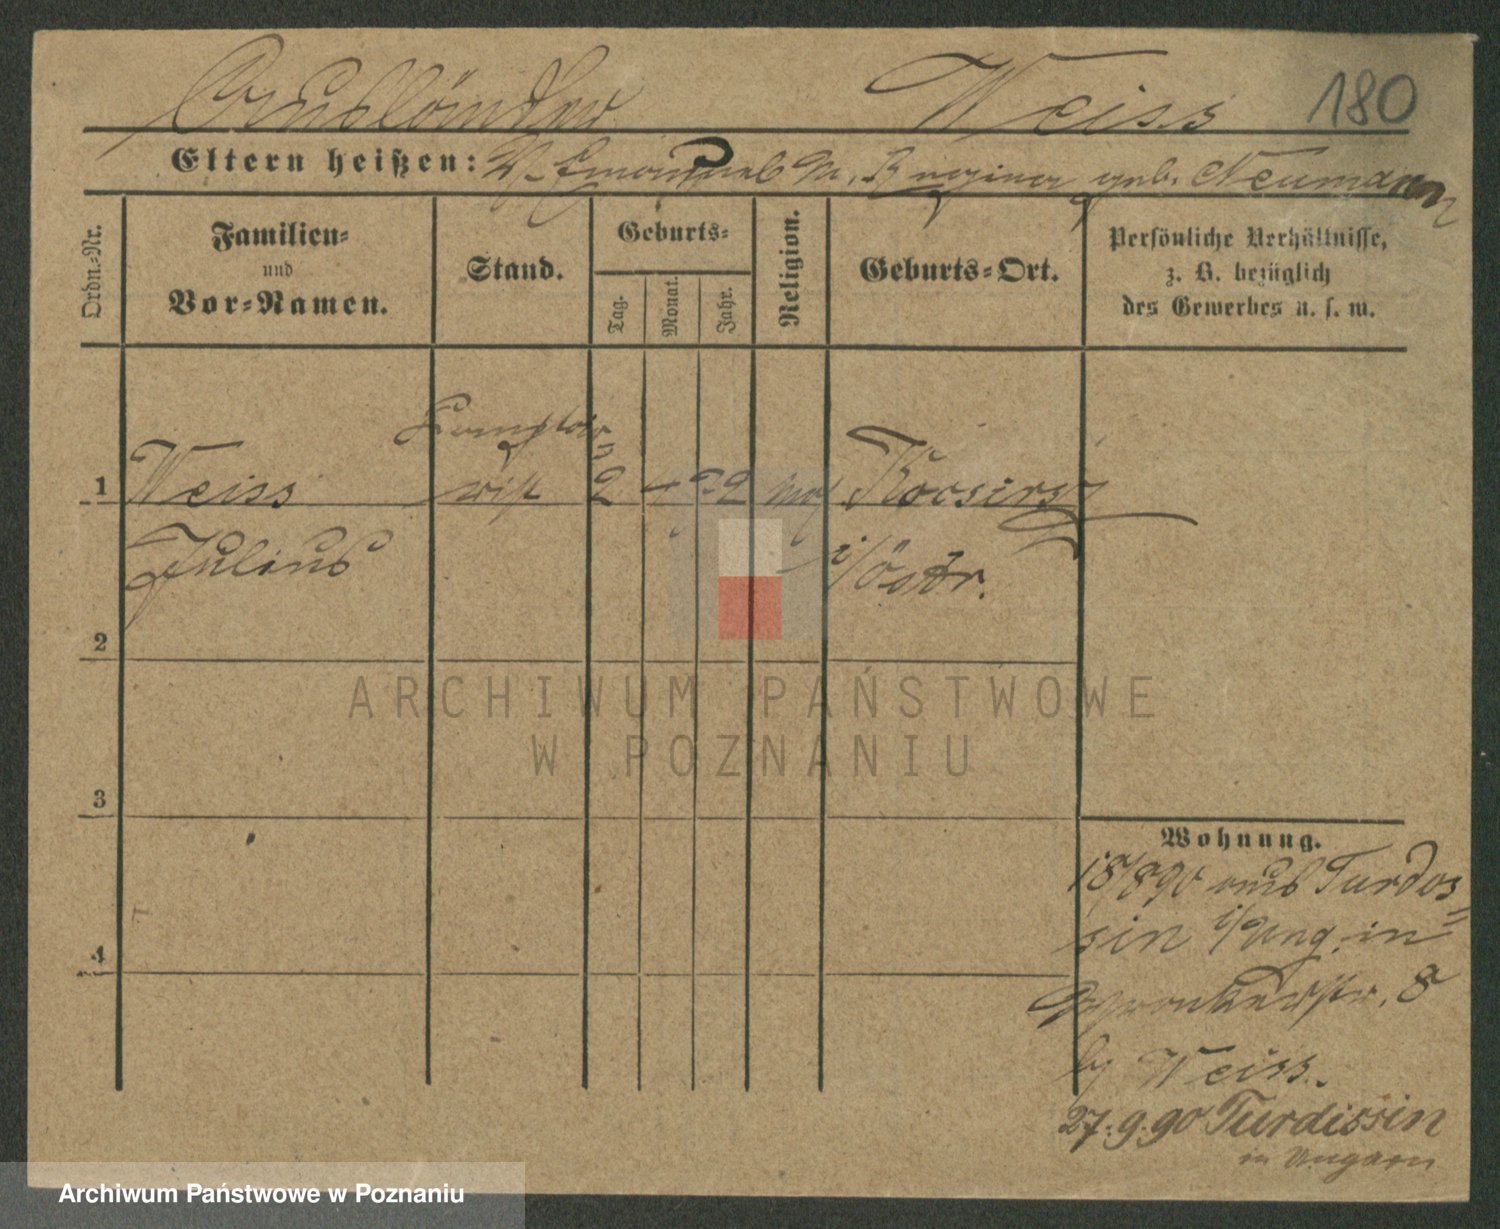 Ausländer Weiss 180
Eltern heißen: V. Emanuel M. Regina geb. Neumann
Ordn.-Nr.
Familien-
und
Vor-Namen.
Stand.
Geburts-
Tag.
Monat.
Jahr.
Religion.
Geburts-Ort.
Persönliche Verhältnisse,
z. B. bezüglich
des Gewerbes u. s. w.
Comptoir-
1 Weiss rist 2 4 72 mos
Julius i/Östr.
2
3
4
ARCHIWUM PAŃSTWOWE
W POZNANIU
Wohnung.
18/8 90 aus Turdos-
sin i/Ung. in
Wronkerstr. 8
by Weiss.
27.9.90 Turdissin
in Ungarn
Archiwum Państwowe w Poznaniu